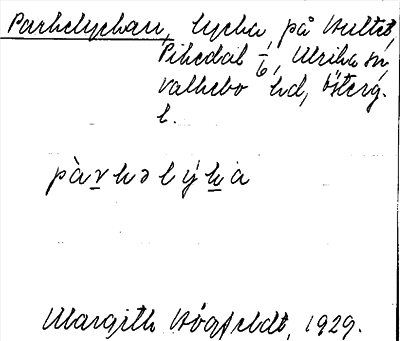 Parkelyckan, lycka på Hultet,
Pikedal 1/6, Ulrika sn,
Valkebo hd, Österg.
l.
pàrkəlýka
Margith Högfeldt, 1929.